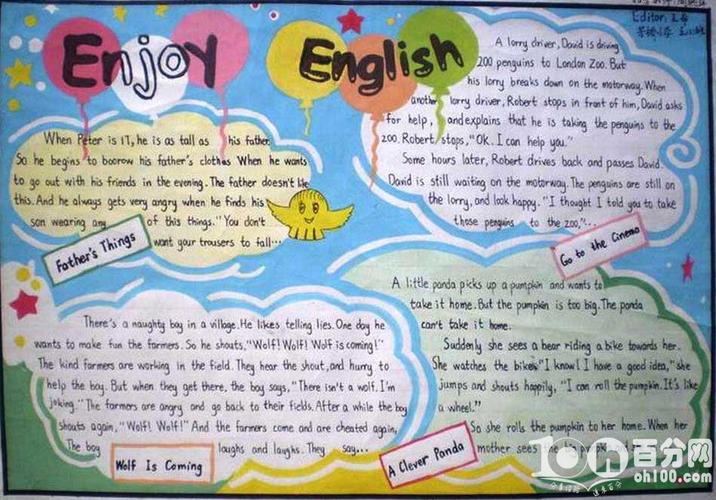 Enjoy English
Editor:
When Peter is 17, he is as tall as his father.
So he begins to boorow his father's clothes When he wants
to go out with his friends in the evening. The father doesn't like
this. And he always gets very angry when he finds his
son wearing any of this things." You don't
want your trousers to fall...
Father's Things
A lorry driver, David is driving
200 penguins to London Zoo. But
his lorry breaks down on the motorway. When
another lorry driver, Robert stops in front of him, David asks
for help, and explains that he is taking the penguins to the
zoo. Robert stops, "OK. I can help you."
Some hours later, Robert drives back and passes David.
David is still waiting on the motorway. The penguins are still on
the lorry, and look happy. "I thought I told you to take
those penguins to the zoo,"...
Go to the Cinema
There's a naughty boy in a village. He likes telling lies. One day he
wants to make fun the farmers. So he shouts, "Wolf! Wolf! Wolf is coming!"
The kind farmers are working in the field. They hear the shout, and hurry to
help the boy. But when they get there, the boy says, "There isn't a wolf. I'm
joking." The farmers are angry and go back to their fields. After a while the boy
shouts again, "Wolf! Wolf!" And the farmers come and are cheated again,
The boy laughs and laughs. They say...
Wolf Is Coming
A little panda picks up a pumpkin and wants to
take it home. But the pumpkin is too big. The panda
can't take it home.
Suddenly she sees a bear riding a bike towards her.
She watches the bike. "I know! I have a good idea," she
jumps and shouts happily, "I can roll the pumpkin. It's like
a wheel."
So she rolls the pumpkin to her home. When her
mother sees
A Clever Panda
100百分网
oh100.com